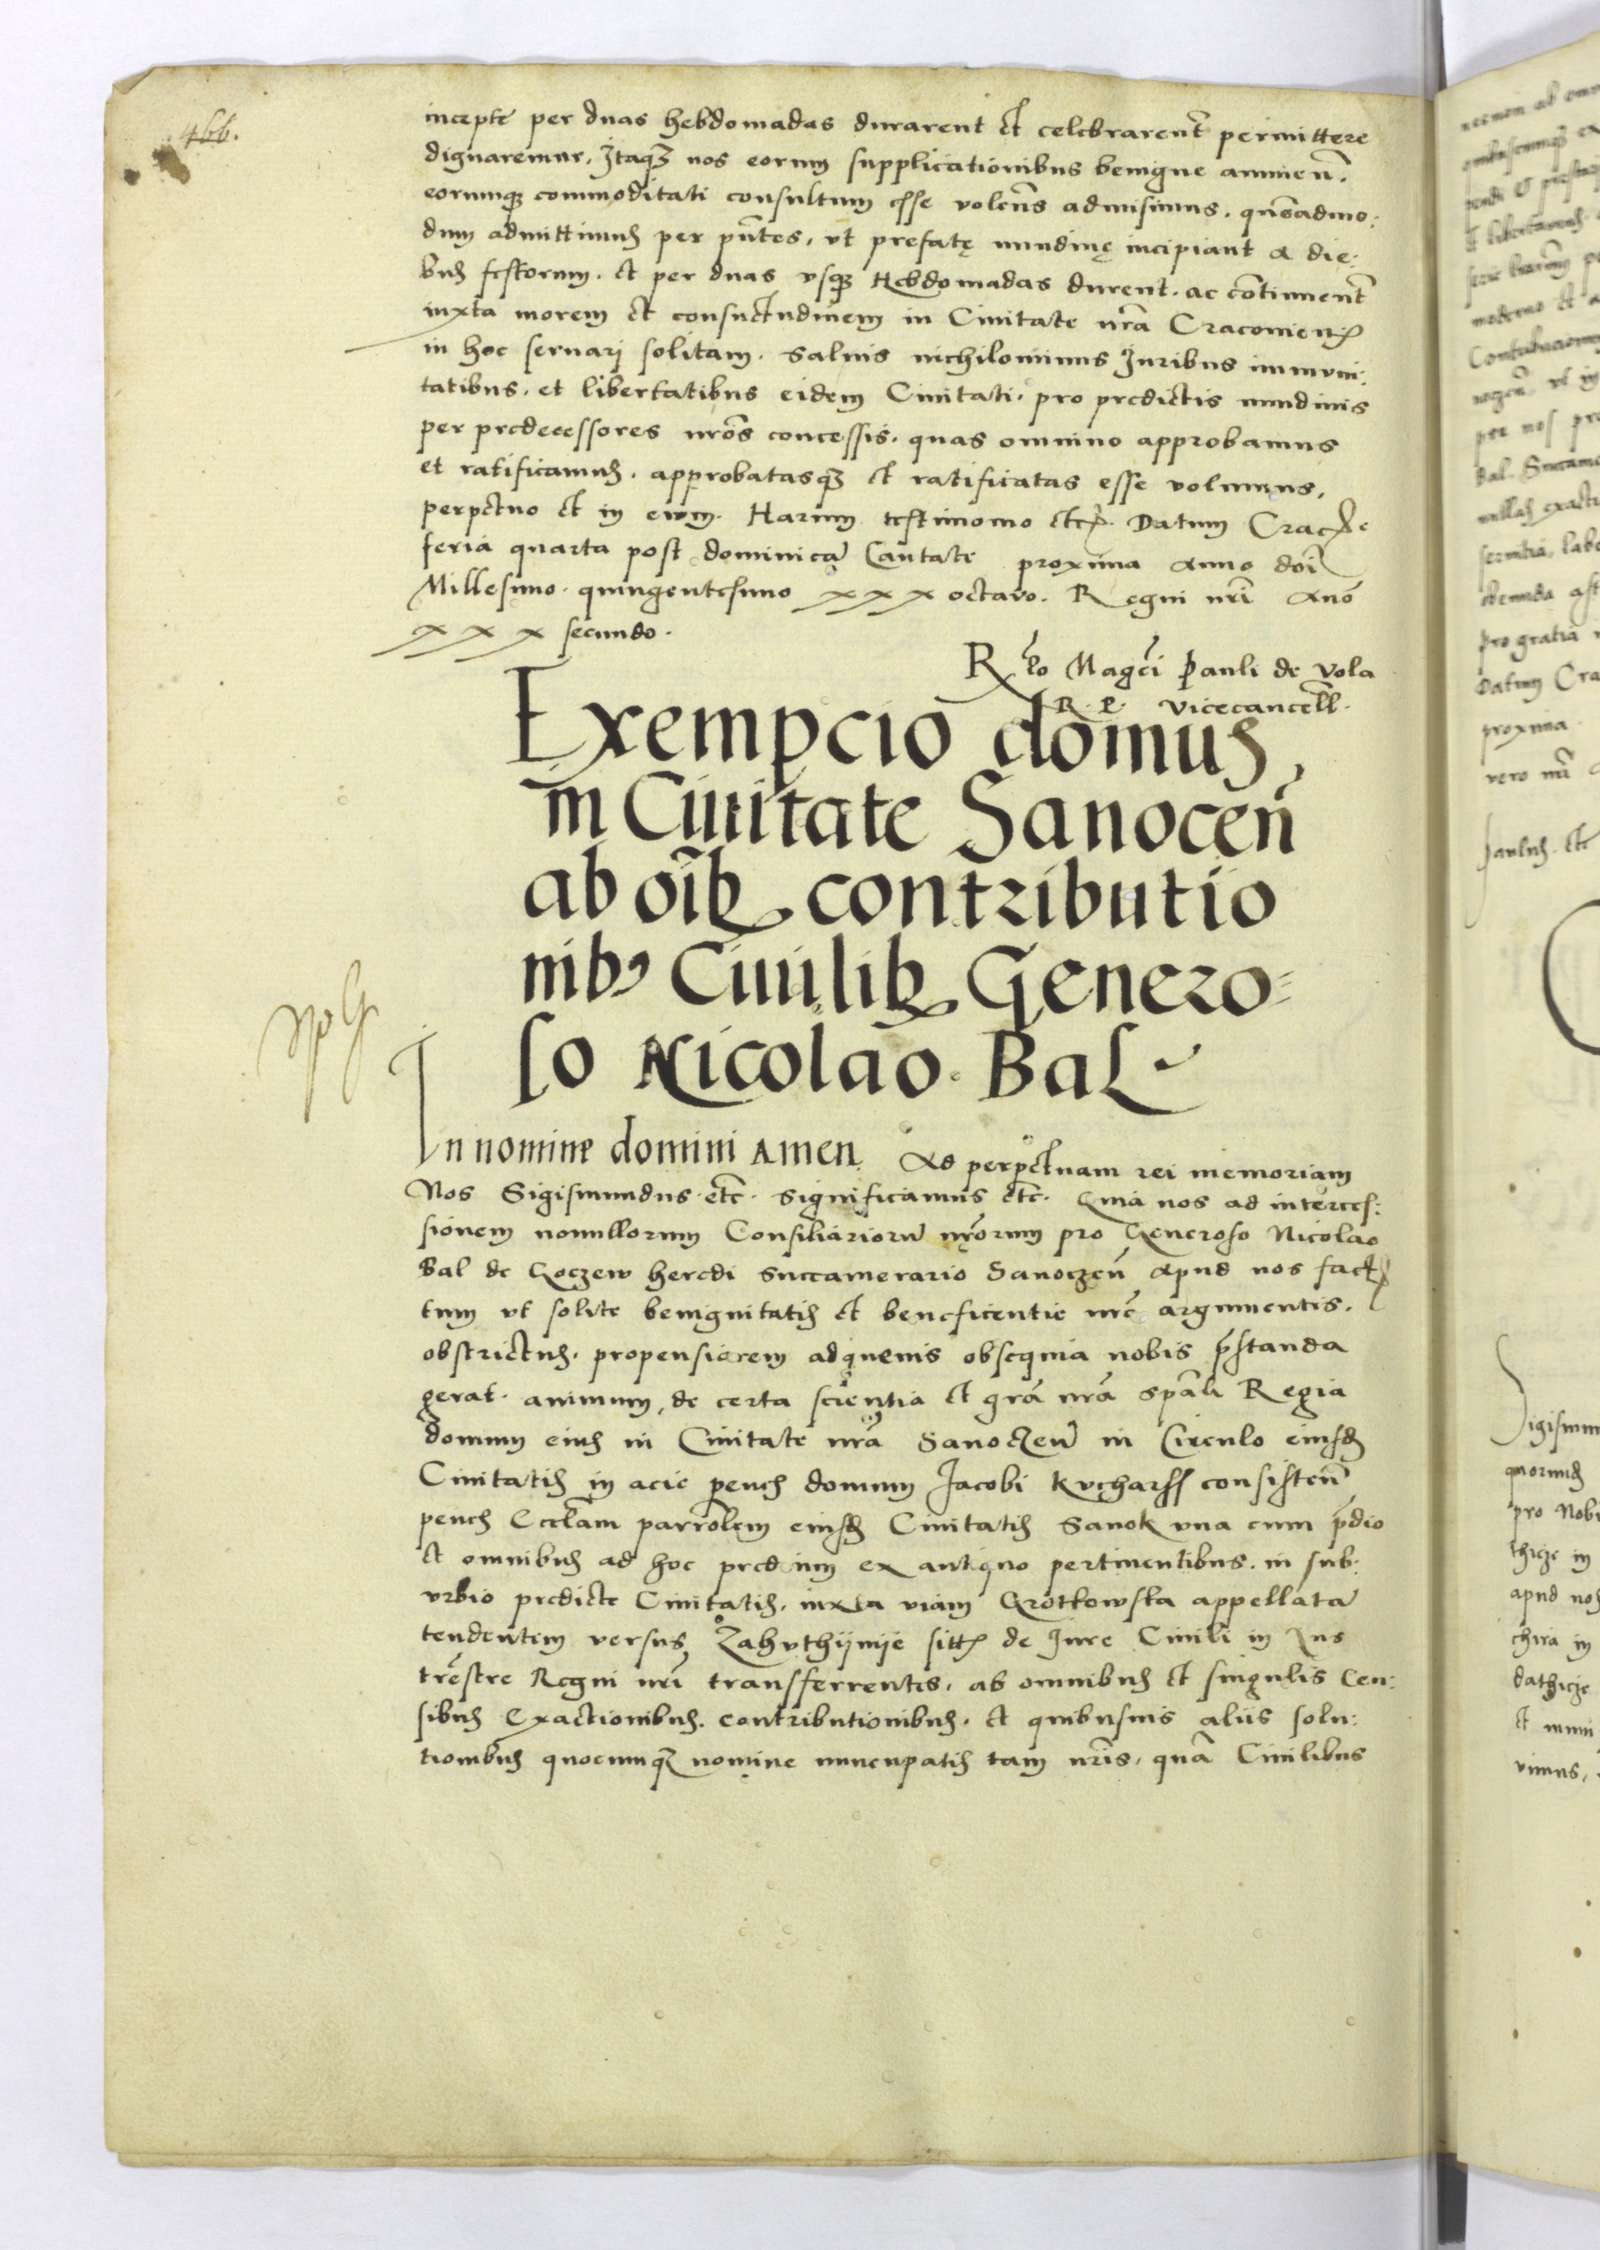 466.
incepte per duas hebdomadas durarent et celebrarent̃ permittere
dignaremur. Itaqꝫ nos eorum supplicationibus benigne annuen̄.
eorumqꝫ commoditati consultum esse volen̄s admisimus. quẽadmo:
dum admittimus per pn̄tes, vt prefatę nundinę incipiant a die:
bus festorum. et per duas vsqꝫ Hebdomadas durent. ac continuent̃
iuxta morem et consuetudinem in Ciuitate nr̃a Cracouien̄
in hoc seruari solitam. Saluis nichilominus Juribus immuni:
tatibus. et libertatibus eidem Ciuitati. pro predictis nundinis
per predecessores nr̃os concessis. quas omnino approbamus
et ratificamus. approbatasqꝫ et ratificatas esse volumus,
perpetuo et in ewm. Harum testimonio etc. Datum Crac̃e
feria quarta post dominicã Cantate proxima Anno dn̄i
Millesimo. quingentesimo xxx octavo. Regni nr̃i Anō
xxx secundo.
Rl̃o Magc̃i Pauli de Vola
R. P. Vicecancell̃.
Exempcio domus,
in Ciuitate Sanocen̄
ab oĩbꝫ contributio
nibꝰ Ciuilibꝫ Genero=
so Nicolao. Bal
In nomine domini amen. Ad perpetuam rei memoriam
Nos Sigismundus etc̃. Significamus etc̃. Quia nos ad interces:
sionem nonullorum Consiliariorũ nr̃orum pro Generoso Nicolao
Bal de Hoczew heredi Succamerario Sanoczen̄ apud nos fact
tum vt solite benignitatis et beneficentie nr̃e argumentis.
obstrictus. propensiorem ad queuis obsequia nobis p̃standa
gerat. animum, de certa scientia et grã nr̃a spãli Regia
domum eius in Ciuitate nr̃a Sanoczen̄ in Circulo eiusdẽ
Ciuitatis in acie penes domum Jacobi Kucharss consisten̄
penes Eccl̃am parrol̃em eiusdẽ Ciuitatis Sanok vna cum p̃dio
et omnibus ad hoc predium ex antiquo pertinentibus. in sub:
vrbio predicte Ciuitatis. iuxta viam Grotkowska appellatã
tendentem versus Zahuthijnije sitt de Jure Ciuili in Jus
tr̃estre Regni nr̃i transferrentes. ab omnibus et singulis Cen:
sibus Exactionibus. contributionibus. et quibusuis aliis solu:
tionibus quocumqꝫ nomine nuncupatis tam nr̃is. quã Ciuilibus